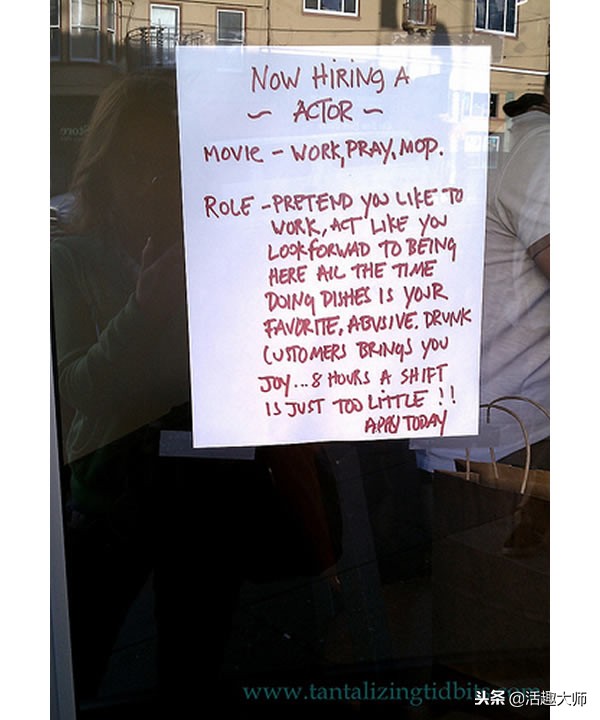 NOW HIRING A
~ ACTOR ~
MOVIE - WORK, PRAY, MOP.
ROLE - PRETEND YOU LIKE TO
WORK, ACT LIKE YOU
LOOKFORWAD TO BEING
HERE ALL THE TIME
DOING DISHES IS YOUR
FAVORITE, ABUSIVE. DRUNK
CUSTOMERS BRINGS YOU
JOY... 8 HOURS A SHIFT
IS JUST TOO LITTLE !!
APPLY TODAY
头条 @活趣大师